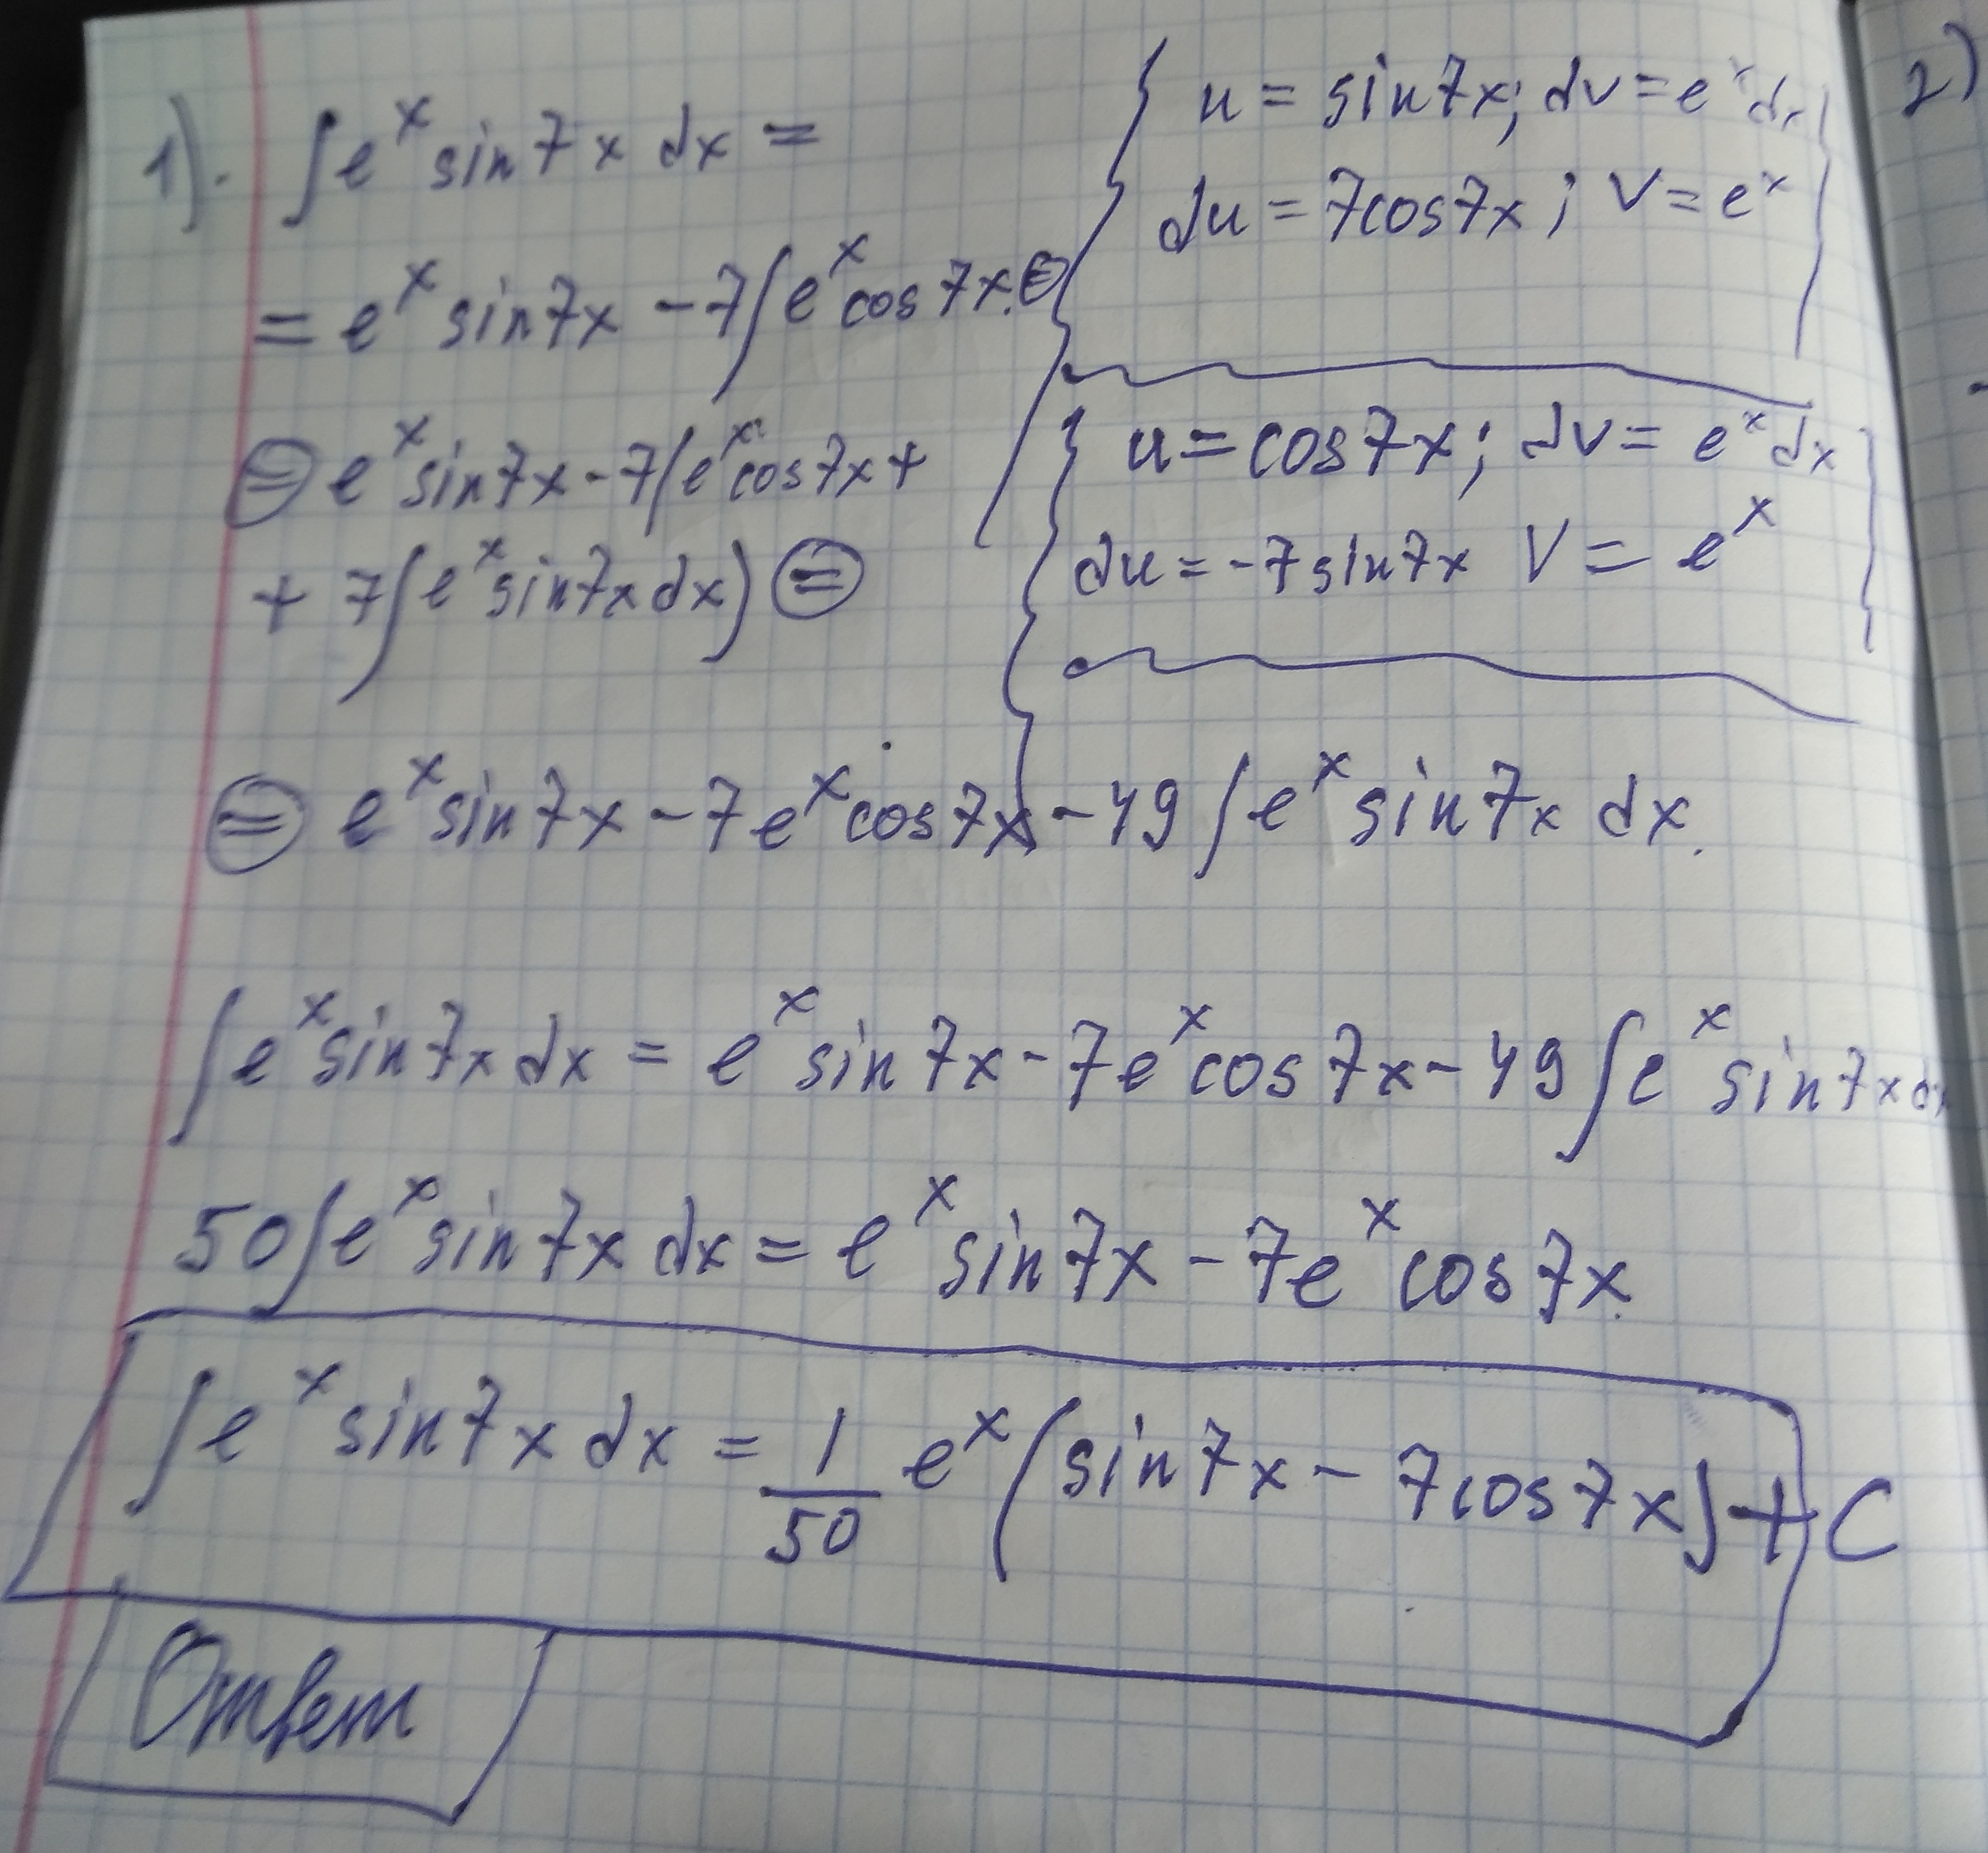 1). ∫e^x sin7x dx =
{ u = sin7x; dv = e^x dx
du = 7cos7x; V = e^x
= e^x sin7x - 7∫e^x cos7x. ⊜
{ u = cos7x; dv = e^x dx
du = -7sin7x V = e^x
⊜ e^x sin7x - 7(e^x cos7x +
+ 7∫e^x sin7x dx) ⊜
⊜ e^x sin7x - 7e^x cos7x - 49∫e^x sin7x dx.
∫e^x sin7x dx = e^x sin7x - 7e^x cos7x - 49∫e^x sin7x dx
50∫e^x sin7x dx = e^x sin7x - 7e^x cos7x.
∫e^x sin7x dx = 1/50 e^x (sin7x - 7cos7x) + C
Ответ
2)